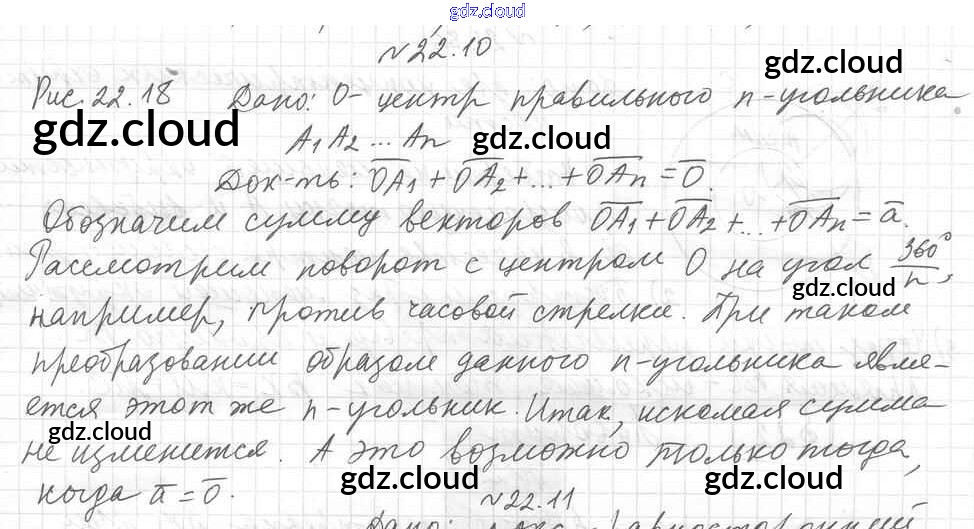 gdz.cloud
№22.10
gdz.cloud
Рис. 22.18 Дано: O- центр правильного n-угольника
gdz.cloud
A₁A₂ ... Aₙ
gdz.cloud
Док-ть: O̅A̅₁ + O̅A̅₂ + ... + O̅A̅ₙ = 0̅.
Обозначим сумму векторов O̅A̅₁ + O̅A̅₂ + ... + O̅A̅ₙ = a̅.
Рассмотрим поворот с центром O на угол 360°/n,
gdz.cloud
например, против часовой стрелки. При таком
преобразовании образом данного n-угольника явля-
ется этот же n-угольник. Итак, искомая сумма
gdz.cloud
не изменяется. А это возможно только тогда,
gdz.cloud gdz.cloud
когда a̅ = 0̅.
№22.11
Дано: